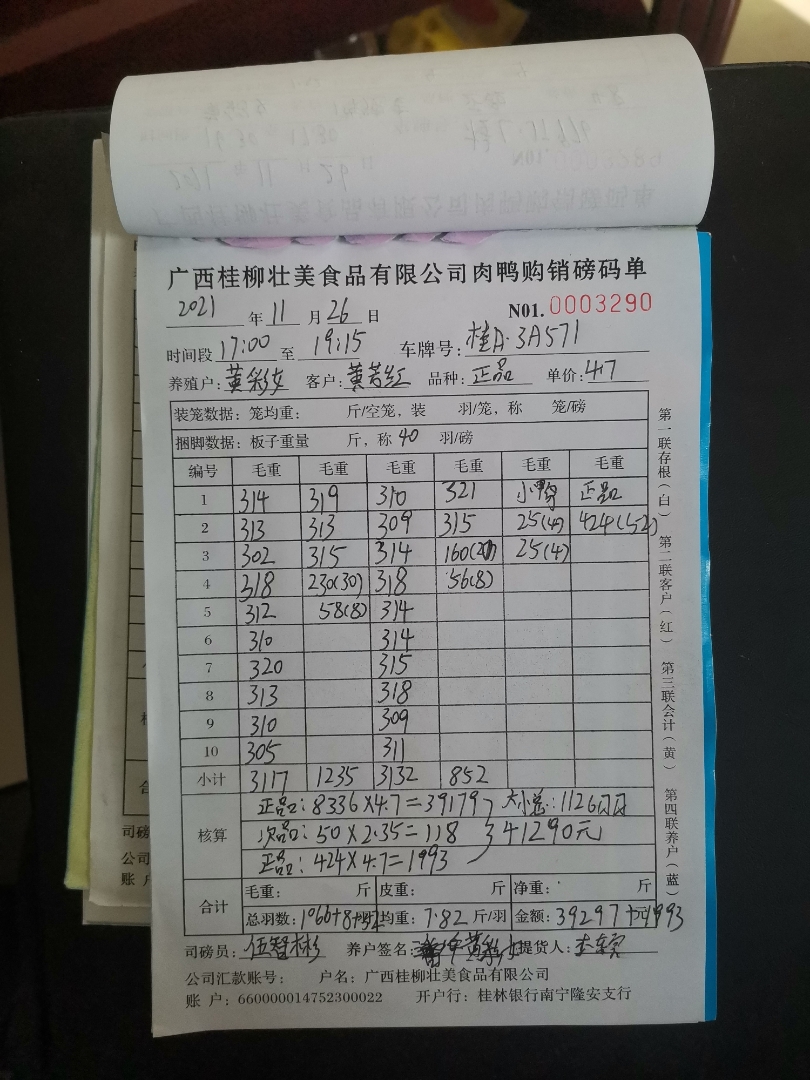 广西桂柳壮美食品有限公司肉鸭购销磅码单
2021 年 11 月 26 日 N01. 0003290
时间段 17:00 至 19:15 车牌号: 桂A·3A571
养殖户: 黄彩女 客户: 黄若红 品种: 正品 单价: 4.7
装笼数据: 笼均重: 斤/空笼, 装 羽/笼, 称 笼/磅
捆脚数据: 板子重量 斤, 称 40 羽/磅
编号 毛重 毛重 毛重 毛重 毛重 毛重
1 314 319 310 321 小鸭 正品
2 313 313 309 315 25(4) 424(52)
3 302 315 314 160(20) 25(4)
4 318 230(30) 318 56(8)
5 312 58(8) 314
6 310 314
7 320 315
8 313 318
9 310 309
10 305 311
小计 3117 1235 3132 852
核算
正品: 8336×4.7=39179 大小总: 1126
次品: 50×2.35=118 41290元
正品: 424×4.7=1993
合计 毛重: 斤 皮重: 斤 净重: 斤
总羽数: 1066+8+52 均重: 7.82 斤/羽 金额: 39297+1993 元
司磅员: 伍智彬 养户签名: 黄彩女 提货人:
公司汇款账号: 户名: 广西桂柳壮美食品有限公司
账 户: 660000014752300022 开户行: 桂林银行南宁隆安支行
第一联存根(白) 第二联客户(红) 第三联会计(黄) 第四联养户(蓝)
司磅
公司
账 户